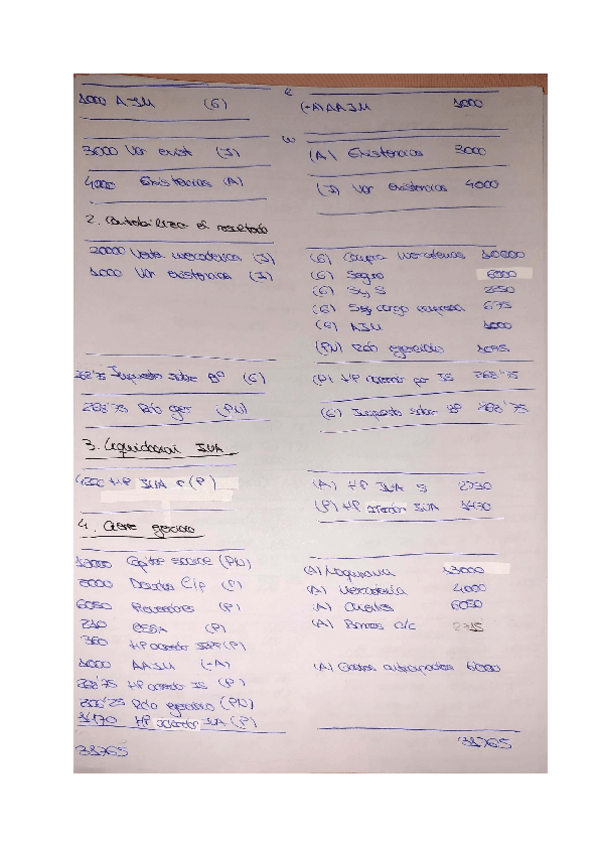 1000 AIM (G) a (-A) AAIM 1000
3000 Var exist (I) (A) Existencias 3000
4000 Existencias (A) (I) Var existencias 4000
2. Contabilizar el resultado
20000 Venta mercaderias (I) (G) Compra Mercaderias
1000 Var existencias (I) (G) Seguro 6000
(G) SyS
(G) SS cargo empresa 675
(G) AIM 1000
(PN) Rdo ejercicio
268'75 Impuesto sobre Bº (G) (P) HP acreedor por IS 268'75
268'75 Rdo ejer (PN) (G) Impuesto sobre Bº 268'75
3. Liquidacion IVA
HP IVA r (P) (A) HP IVA S 2730
(P) HP acreedor IVA 1470
4. Cierre ejercicio
Capital social (PN) (A) Maquinaria 13000
5000 Deudas C/p (P) (A) Mercaderia 4000
6050 Proveedores (P) (A) Clientes 6050
(P) (A) Bancos c/c
360 HP acreedor IRPF (P)
1000 AAIM (-A) (A) Gastos anticipados 6000
268'75 HP acreedor IS (P)
Rdo ejercicio (PN)
1470 HP acreedor IVA (P)
31765 31765